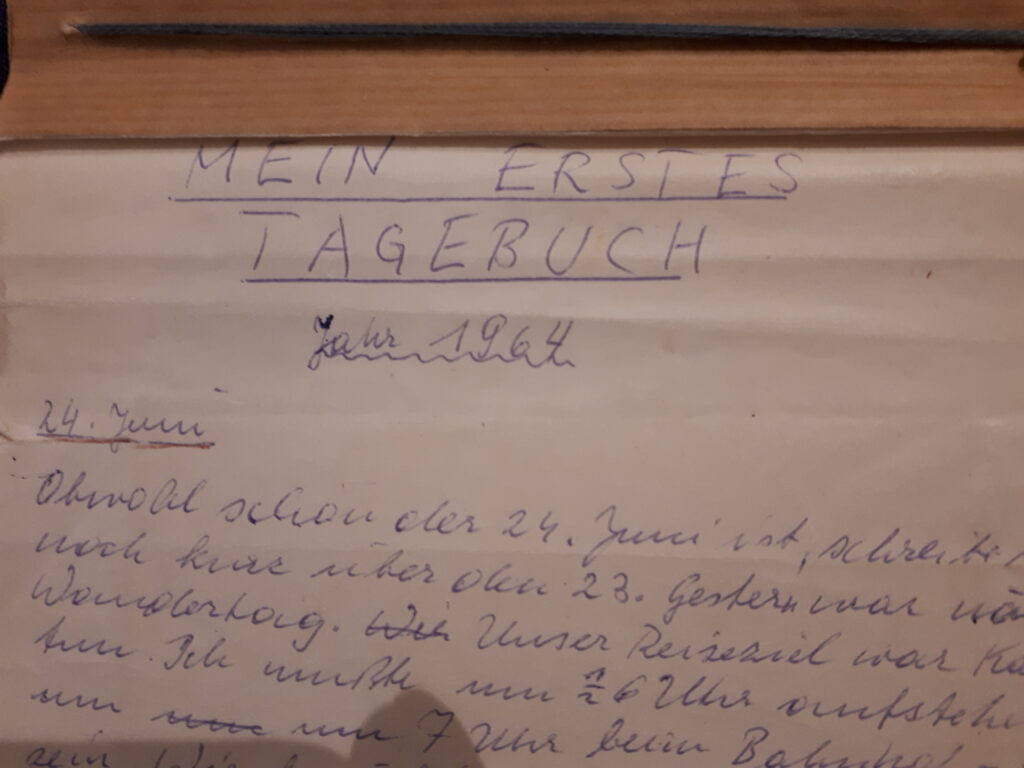 MEIN ERSTES
TAGEBUCH
Jahr 1964
24. Juni
Obwohl schon der 24. Juni ist, schreibe
noch kurz über den 23. Gestern war nä
Wandertag. Wir Unser Reiseziel war Ka
tun. Ich mußte um ½6 Uhr aufstehe
um um 7 Uhr beim Bahnhof
sein. Wir